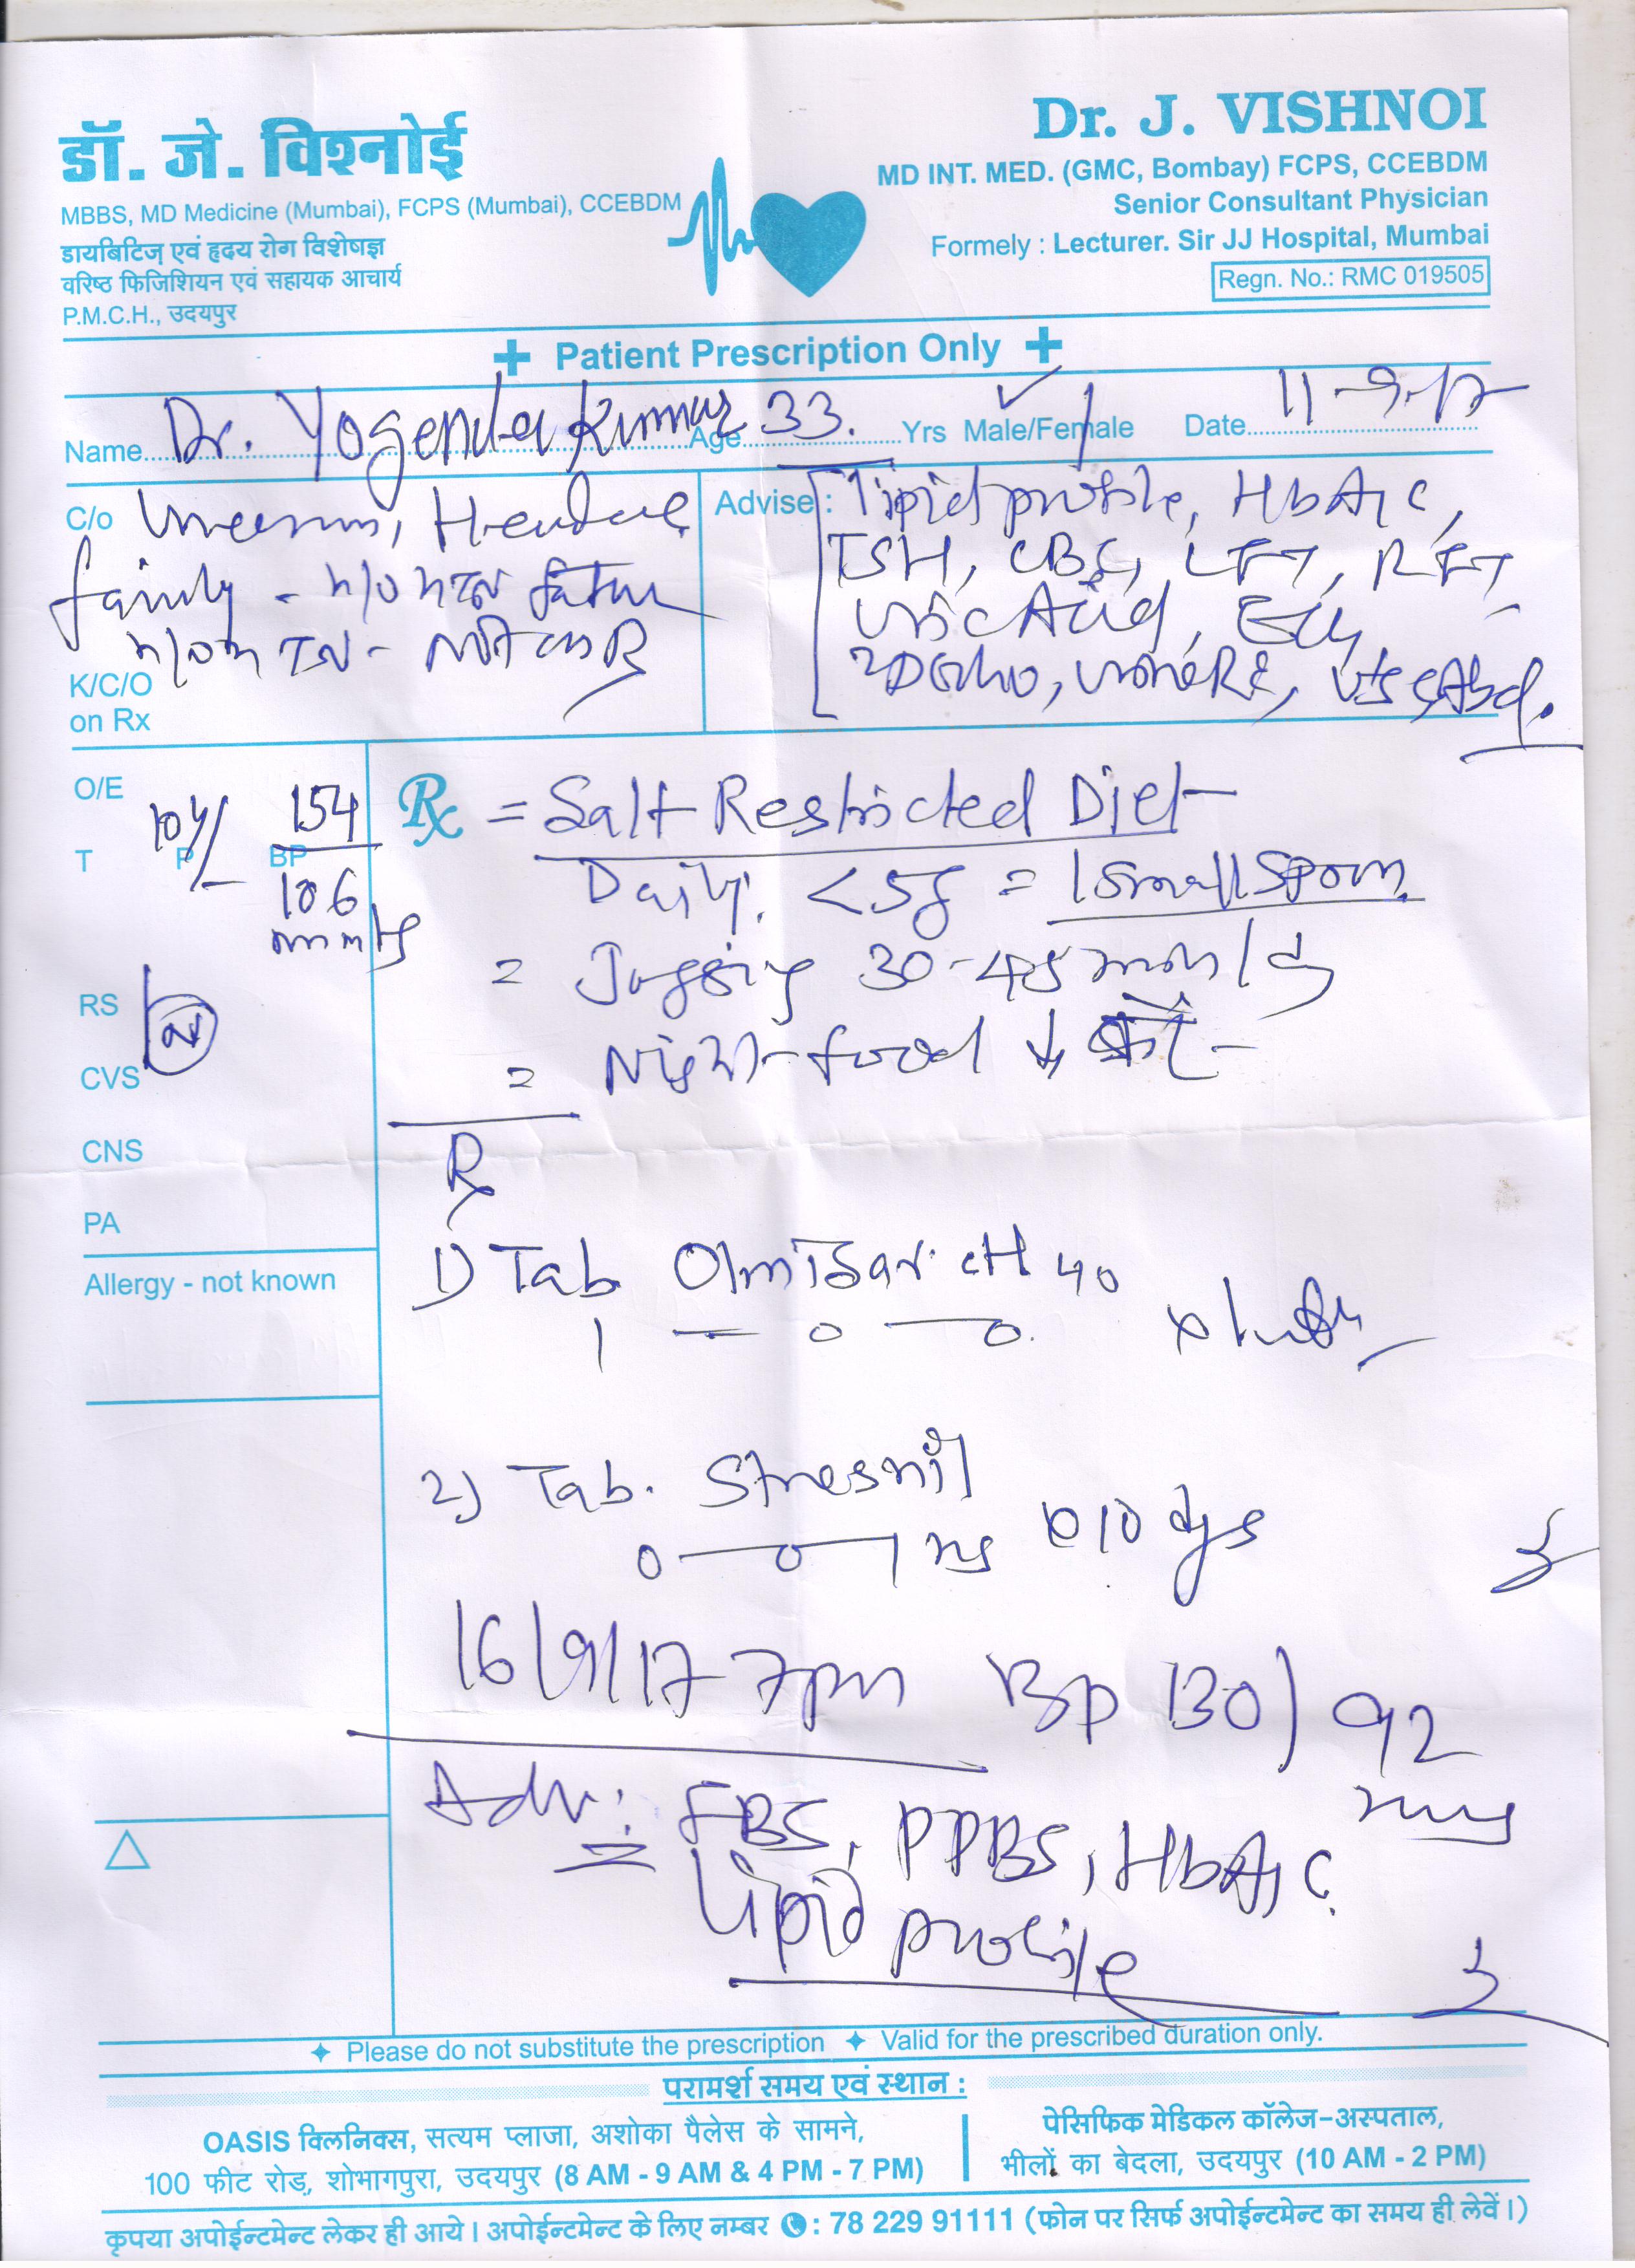 डॉ. जे. विश्नोई
MBBS, MD Medicine (Mumbai), FCPS (Mumbai), CCEBDM
डायबिटिज़ एवं हृदय रोग विशेषज्ञ
वरिष्ठ फिजिशियन एवं सहायक आचार्य
P.M.C.H., उदयपुर
Dr. J. VISHNOI
MD INT. MED. (GMC, Bombay) FCPS, CCEBDM
Senior Consultant Physician
Formely : Lecturer. Sir JJ Hospital, Mumbai
Regn. No.: RMC 019505
Patient Prescription Only
Name Dr. Yogender Kumar Age 33. Yrs Male/Female Date 11-9-17
C/o
family - h/o HTN father
h/o HTN -
K/C/O
on Rx
Advise : Lipid profile, HbA1c,
TSH, CBC, LFT, RFT,
Uric Acid, ECG,
2D Echo, Urine RE, Abd.
O/E
T P 104/ BP 154
106
mmHg
RS N
CVS
CNS
PA
Allergy - not known
Rx = Salt Restricted Diet
Daily. <5g = 1 Small Spoon
= Jogging 30-45 min/d
= Night food ↓ करें
Rx
1) Tab Olmisar CH 40
1 — 0 — 0
2) Tab. Stresnil
0 — 0 — 1 x 10 dys
16/9/17 7pm BP 130/92
Adv: FBS, PPBS, HbA1c
Lipid profile
Δ
Please do not substitute the prescription Valid for the prescribed duration only.
परामर्श समय एवं स्थान :
OASIS क्लिनिक्स, सत्यम प्लाजा, अशोका पैलेस के सामने,
100 फीट रोड़, शोभागपुरा, उदयपुर (8 AM - 9 AM & 4 PM - 7 PM)
पेसिफिक मेडिकल कॉलेज-अस्पताल,
भीलों का बेदला, उदयपुर (10 AM - 2 PM)
कृपया अपोईन्टमेन्ट लेकर ही आये। अपोईन्टमेन्ट के लिए नम्बर : 78 229 91111 (फोन पर सिर्फ अपोईन्टमेन्ट का समय ही लेवें।)